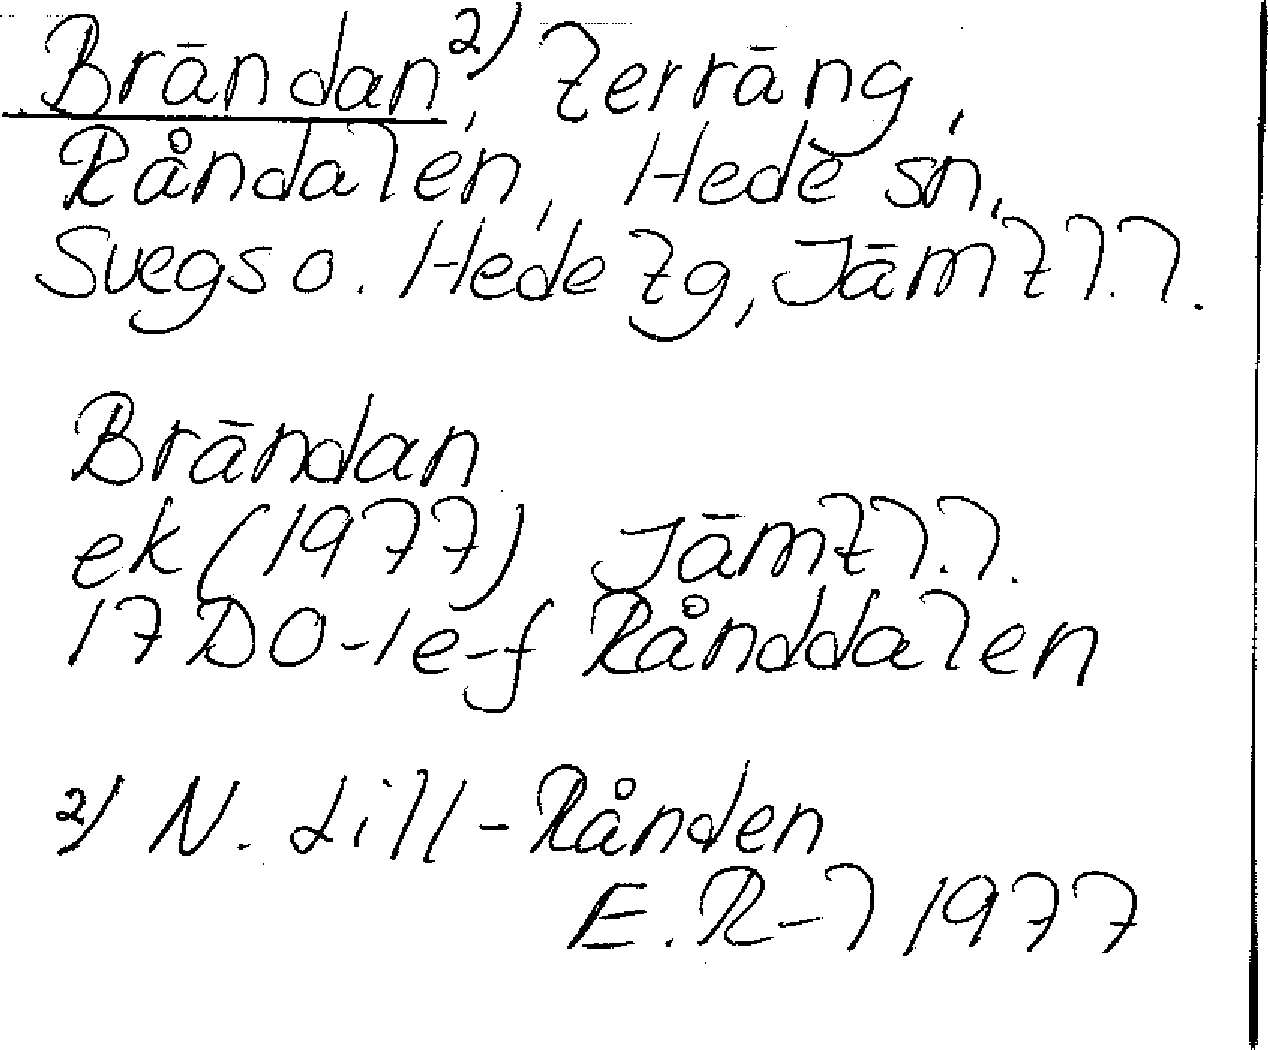 Brändan²⁾, Terräng,
Råndalen, Hede sn,
Svegs o. Hede tg, Jämtl.l.
Brändan
ek (1977) Jämtl.l.
17 D0-1e-f Rånddalen
²⁾ N. Lill-Rånden
E. R-l 1977